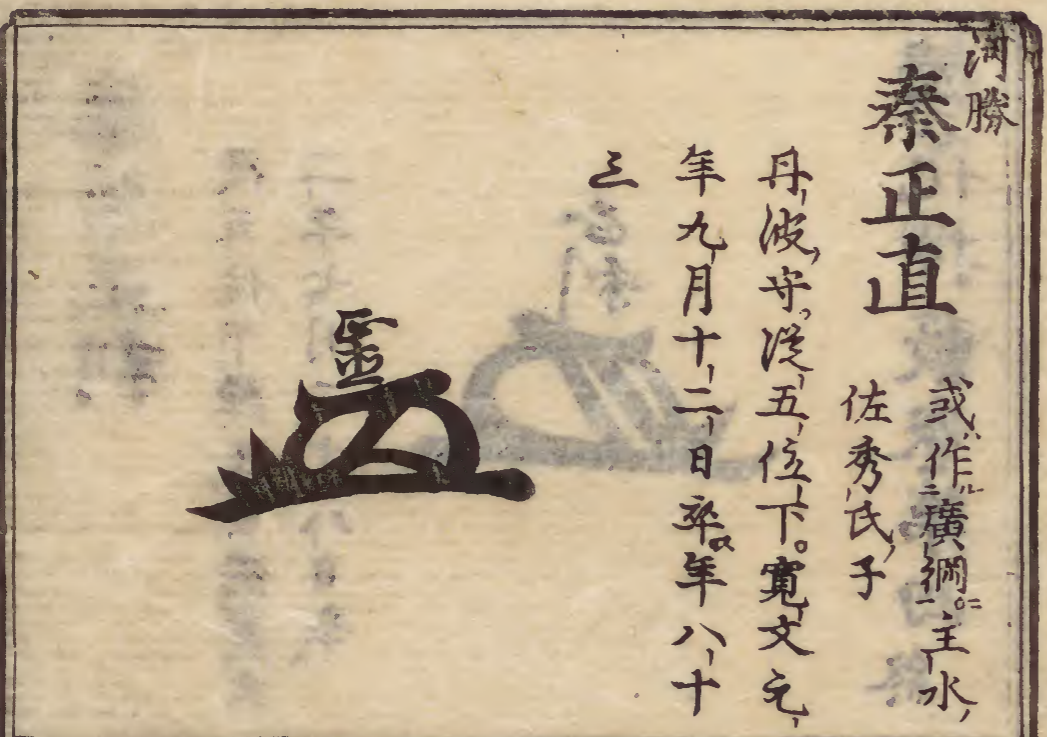 満勝
秦正直
或作廣綱。主水
佐秀氏子
丹波守、從五位下。寛文元
年九月十二日卒。年八十
三